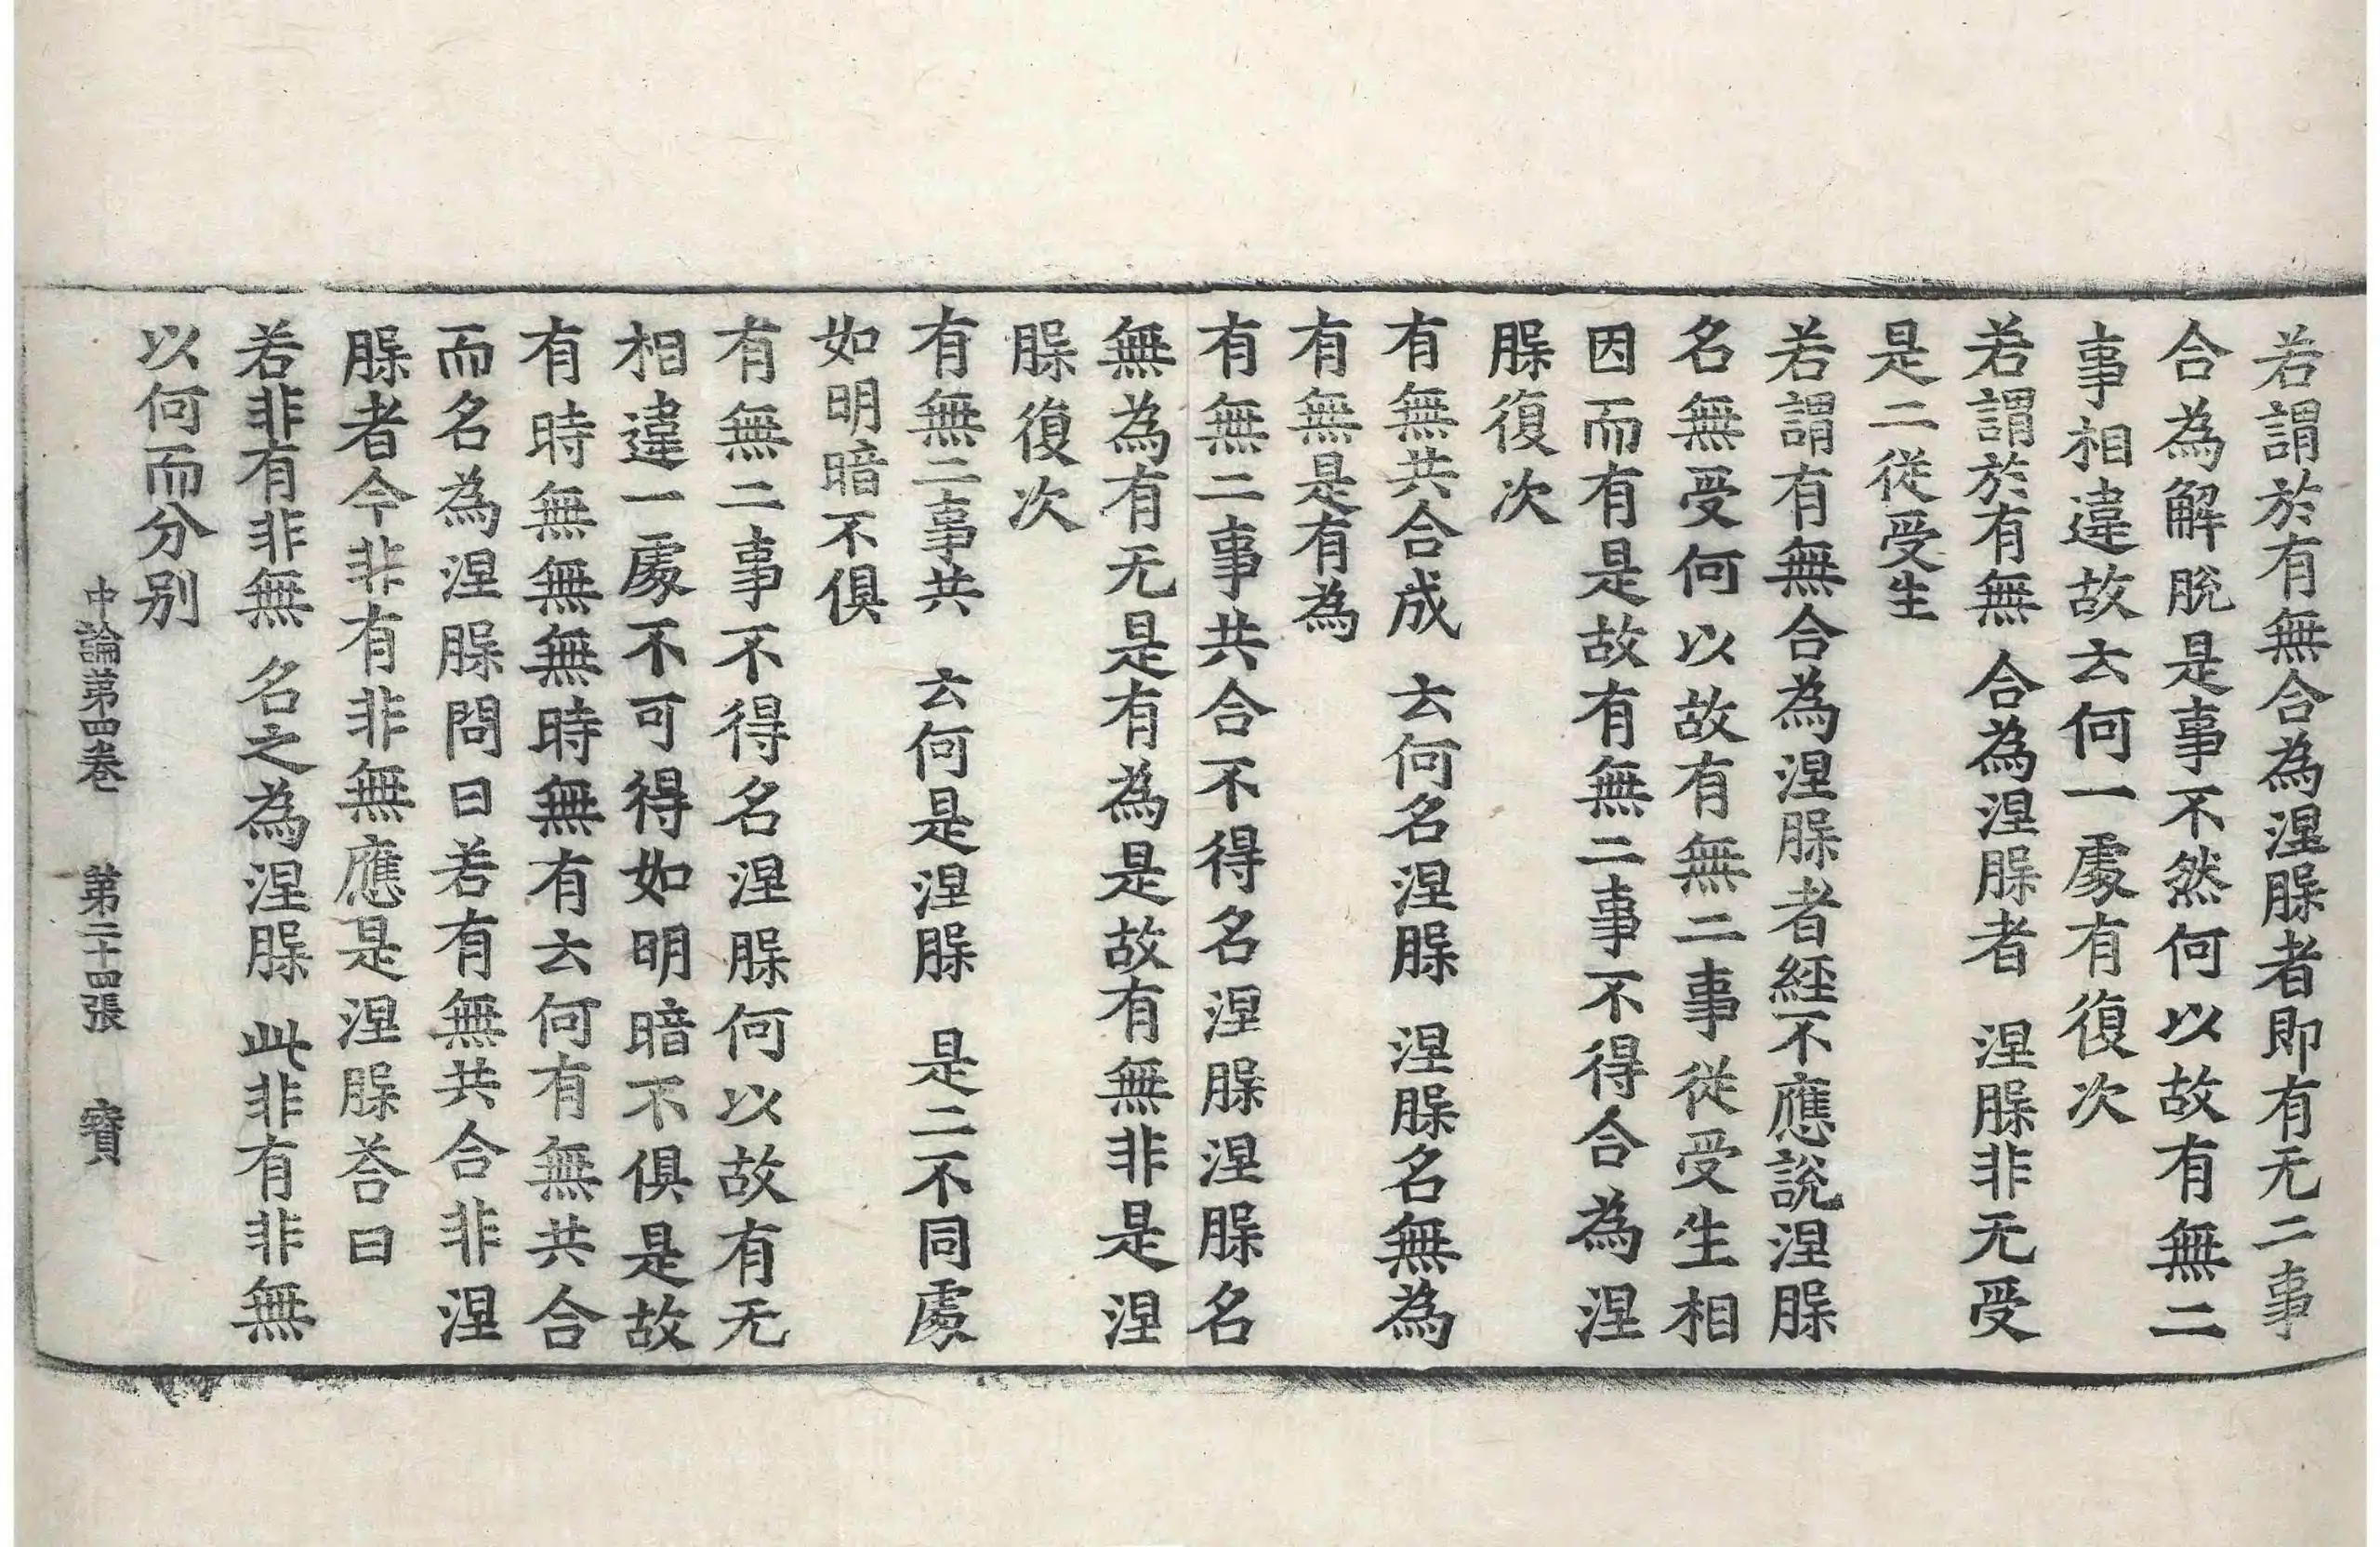 若謂於有無合為涅槃者即有无二事
合為解脫是事不然何以故有無二
事相違故云何一處有復次
若謂於有無 合為涅槃者 涅槃非无受
是二從受生
若謂有無合為涅槃者經不應說涅槃
名無受何以故有無二事從受生相
因而有是故有無二事不得合為涅
槃復次
有無共合成 云何名涅槃 涅槃名無為
有無是有為
有無二事共合不得名涅槃涅槃名
無為有无是有為是故有無非是涅
槃復次
有無二事共 云何是涅槃 是二不同處
如明暗不俱
有無二事不得名涅槃何以故有无
相違一處不可得如明暗不俱是故
有時無無無時無有云何有無共合
而名為涅槃問曰若有無共合非涅
槃者今非有非無應是涅槃荅曰
若非有非無 名之為涅槃 此非有非無
以何而分別
中論第四卷 第二十四張 寶